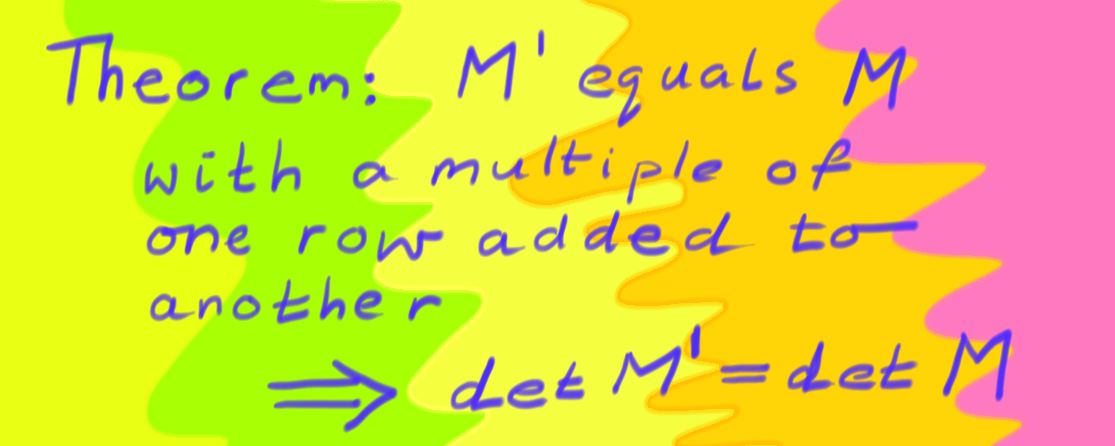 Theorem: M' equals M
with a multiple of
one row added to
another
⇒ det M' = det M